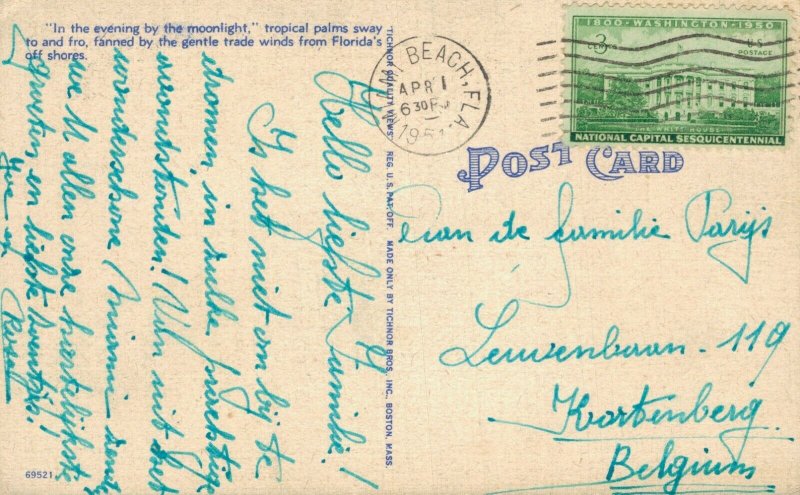 "In the evening by the moonlight," tropical palms sway
to and fro, fanned by the gentle trade winds from Florida's
off shores.
Hello liefste Familie!
Is het niet om bij te
dromen, in zulke prachtige
avondstonden! Van uit het
wondschone Miami zendt
we U allen onze hartelijkste
groeten en liefste zoentjes.
69521
TICHNOR QUALITY VIEWS REG. U. S. PAT. OFF. MADE ONLY BY TICHNOR BROS. INC., BOSTON, MASS.
BEACH, FLA
APR 1
630 P
1951
1800 - WASHINGTON - 1950
3 CENTS
U.S. POSTAGE
THE WHITE HOUSE
NATIONAL CAPITAL SESQUICENTENNIAL
POST CARD
Aan de familie Parijs
Leuvenbaan - 119
Kortenberg.
Belgium